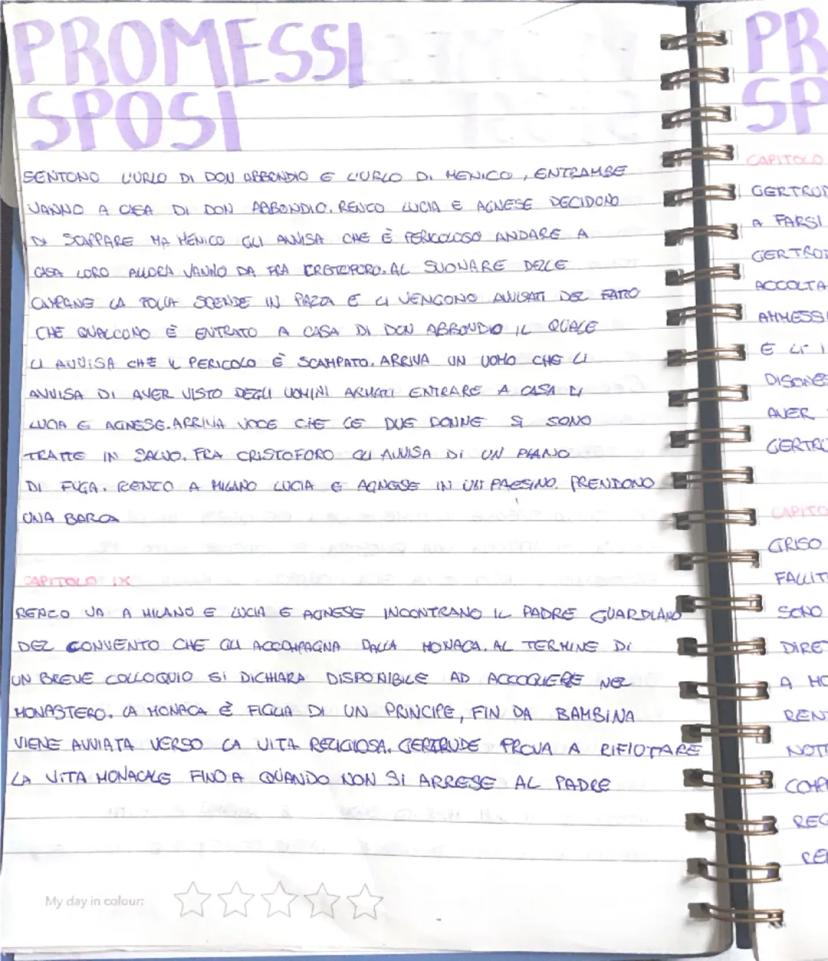 PROMESSI
SPOSI
SENTONO L'URLO DI DON ABBONDIO E L'URLO DI MENICO, ENTRAMBE
VANNO A CASA DI DON ABBONDIO. RENZO LUCIA E AGNESE DECIDONO
DI SCAPPARE MA MENICO GLI AVVISA CHE È PERICOLOSO ANDARE A
CASA LORO ALLORA VANNO DA FRA CRISTOFORO. AL SUONARE DELLE
CAMPANE LA FOLLA SCENDE IN PIAZZA E LI VENGONO AVVISATI DEL FATTO
CHE QUALCUNO È ENTRATO A CASA DI DON ABBONDIO IL QUALE
LI AVVISA CHE IL PERICOLO È SCAMPATO. ARRIVA UN UOMO CHE LI
AVVISA DI AVER VISTO DEGLI UOMINI ARMATI ENTRARE A CASA DI
LUCIA E AGNESE. ARRIVA VOCE CHE LE DUE DONNE SI SONO
TRATTE IN SALVO. FRA CRISTOFORO GLI AVVISA DI UN PIANO
DI FUGA. RENZO A MILANO LUCIA E AGNESE IN UN PAESINO. PRENDONO
UNA BARCA
CAPITOLO IX
RENZO VA A MILANO E LUCIA E AGNESE INCONTRANO IL PADRE GUARDIANO
DEL CONVENTO CHE GLI ACCOMPAGNA DALLA MONACA. AL TERMINE DI
UN BREVE COLLOQUIO SI DICHIARA DISPONIBILE AD ACCOGLIERE NEL
MONASTERO. LA MONACA È FIGLIA DI UN PRINCIPE, FIN DA BAMBINA
VIENE AVVIATA VERSO LA VITA RELIGIOSA. GERTRUDE PROVA A RIFIUTARE
LA VITA MONACALE FINO A QUANDO NON SI ARRESE AL PADRE
My day in colour:
PR
SP
CAPITOLO
GERTRUD
A FARSI
GERTRUD
ACCOLTA
AMMESSI
E LI
DISONES
AVER
GERTRU
CAPITO
GRISO
FALLIT
SONO
DIRET
A MO
REN
NOTT
COMP
REC
REN